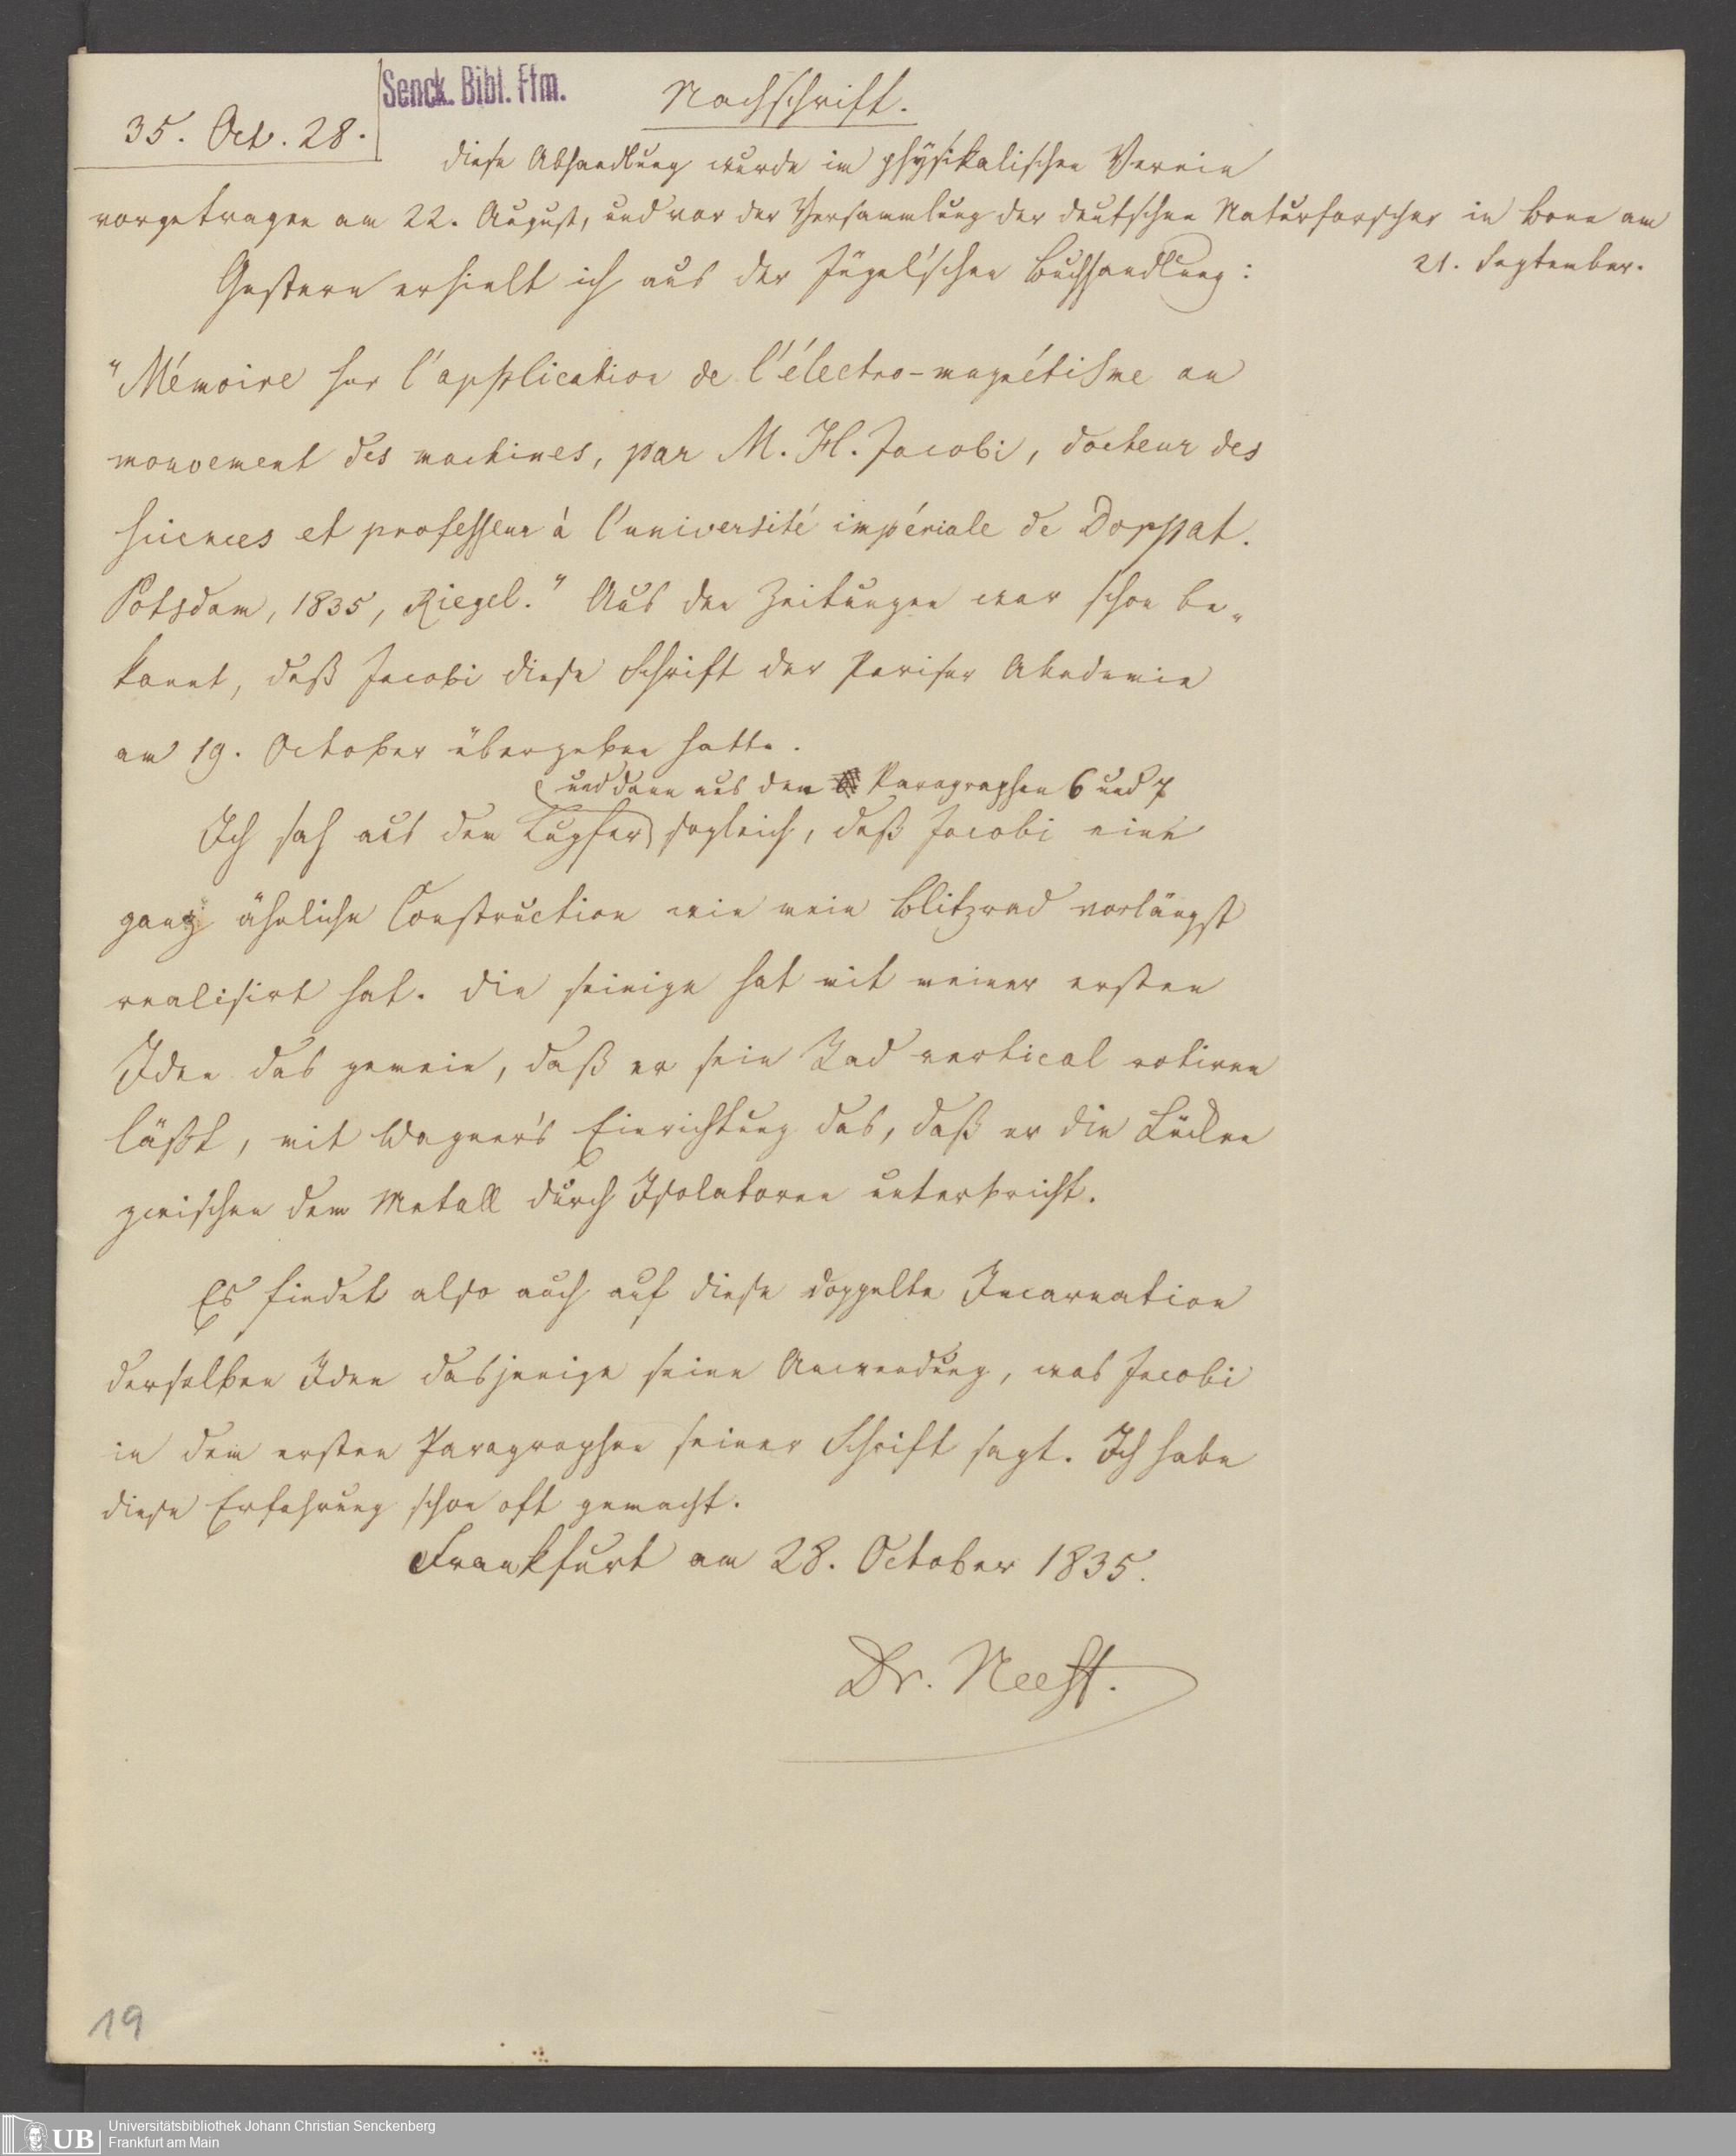 Senck. Bibl. Ffm.
35. Oct. 28.
Nachschrift.
Diese Abhandlung wurde im physikalischen Verein
vorgetragen am 22. August, und vor der Versammlung der deutschen Naturforscher in Bonn am
21. September.
Gestern erhielt ich aus der Jügel'schen Buchhandlung:
"Mémoire sur l'application de l'électro-magnétisme au
mouvement des machines, par M. H. Jacobi, docteur des
sciences et professeur à l'université impériale de Dorpat.
Potsdam, 1835, Riegel." Aus den Zeitungen war schon be-
kannt, daß Jacobi diese Schrift der Pariser Akademie
am 19. October übergeben hatte.
und dann aus den Paragraphen 6 und 7
Ich sah aus den Kupfer sogleich, daß Jacobi eine
ganz ähnliche Construction wie mein Blitzrad vorlängst
realisirt hat. Die seinige hat mit meiner ersten
Idee das gemein, daß er sein Rad vertical rotiren
läßt, mit Wagner's Einrichtung das, daß er die Lücken
zwischen dem Metall durch Isolatoren unterbricht.
Es findet also auch auf diese doppelte Incarnation
derselben Idee dasjenige seine Anwendung, was Jacobi
in dem ersten Paragraphen seiner Schrift sagt. Ich habe
diese Erfahrung schon oft gemacht.
Frankfurt am 28. October 1835.
Dr. Neeff.
19
UB
Universitätsbibliothek Johann Christian Senckenberg
Frankfurt am Main